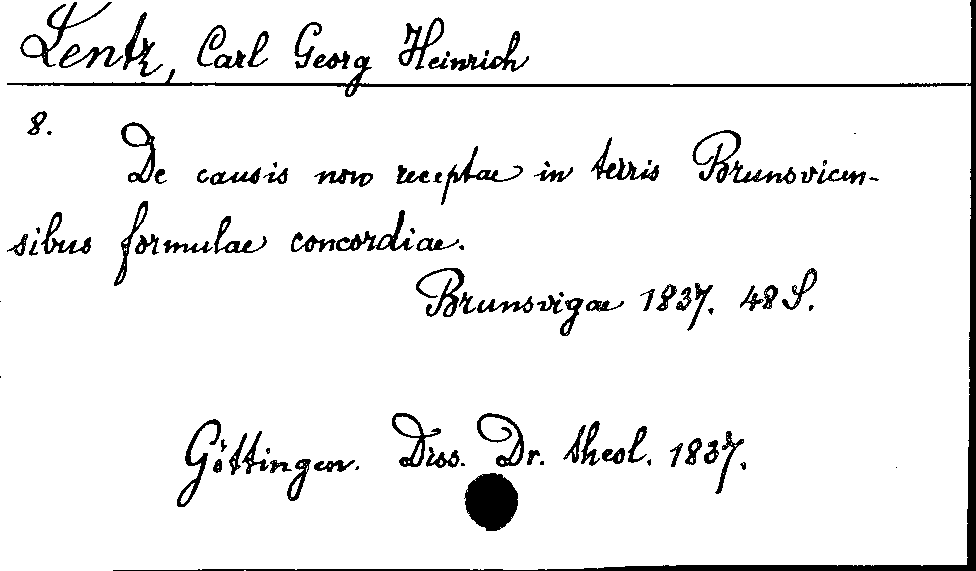 Lentz, Carl Georg Heinrich
8.
De causis non receptae in terris Brunsvicen-
sibus formulae concordiae.
Brunsvigae 1837. 48 S.
Göttingen. Diss. Dr. theol. 1837.